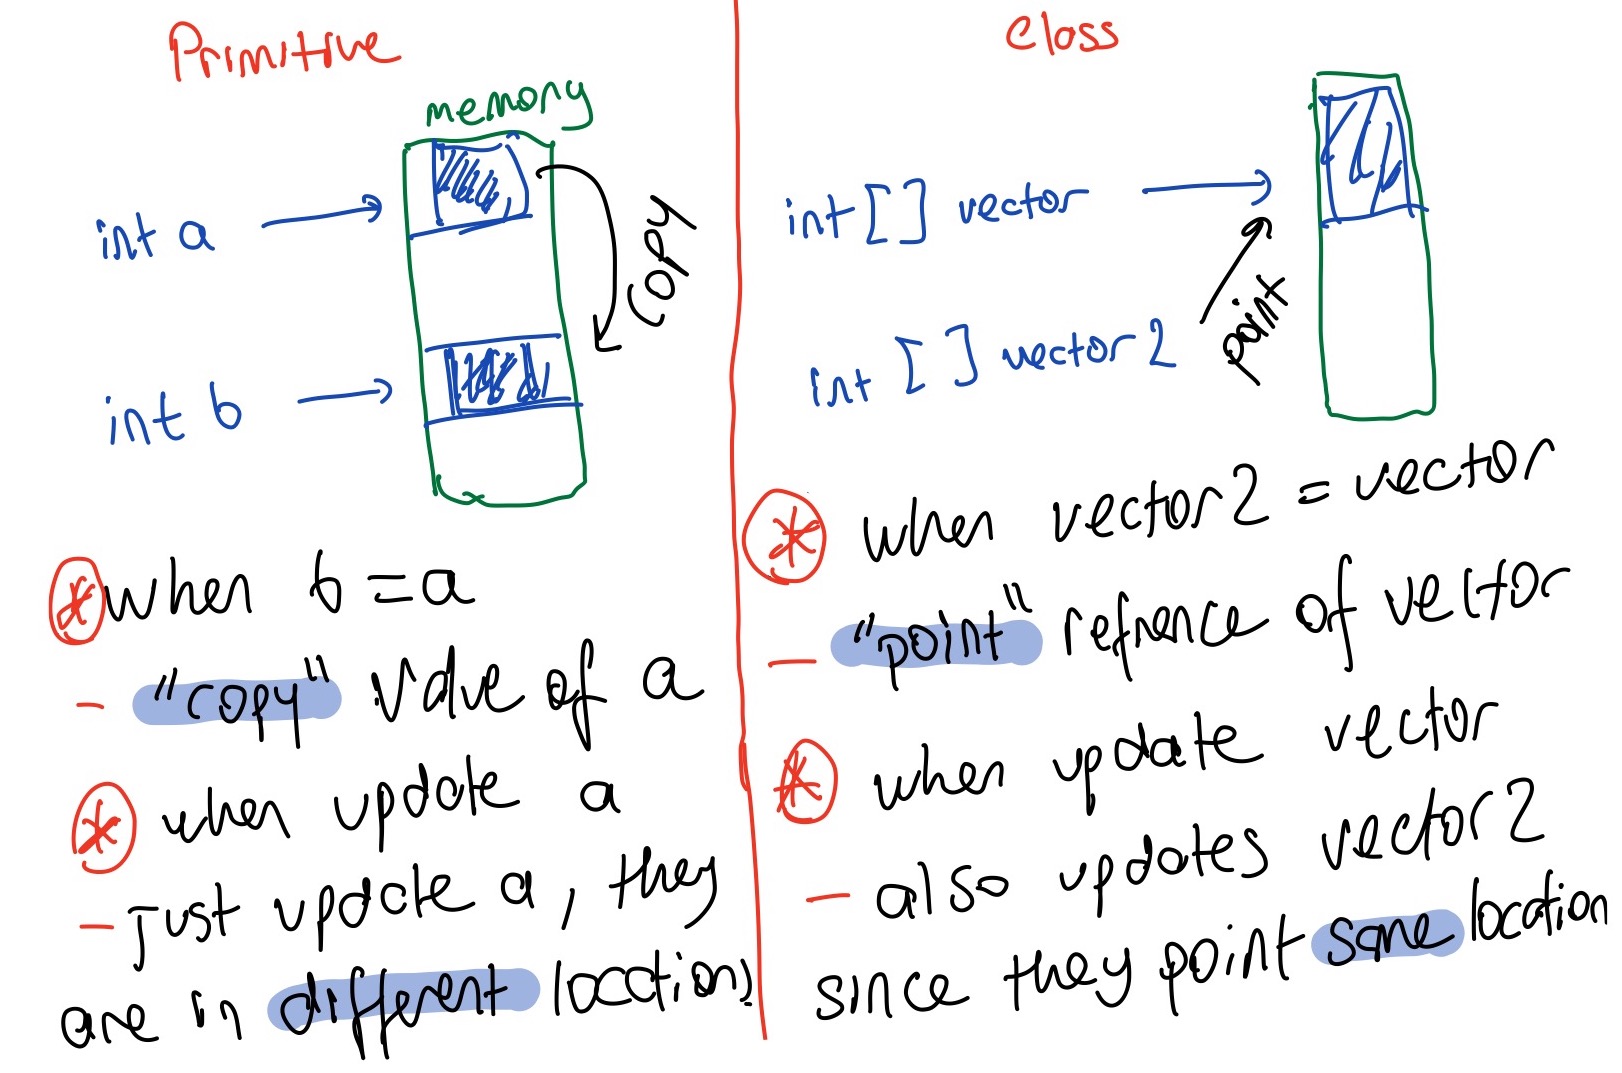 Primitive
memory
int a
copy
int b
* when b = a
- "copy" value of a
* when update a
- just update a, they
are in different locations
Class
int [ ] vector
point
int [ ] vector 2
* when vector2 = vector
- "point" refrence of vector
* when update vector
- also updates vector2
since they point same location